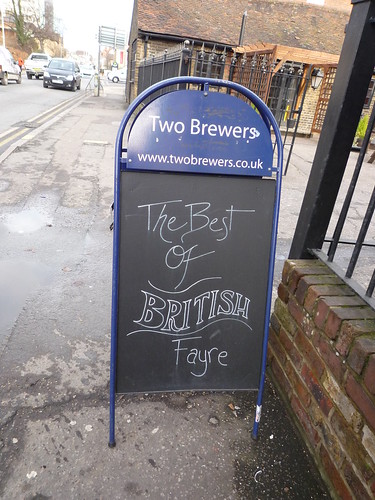 Two Brewers
www.twobrewers.co.uk
The Best
Of
BRITISH
Fayre